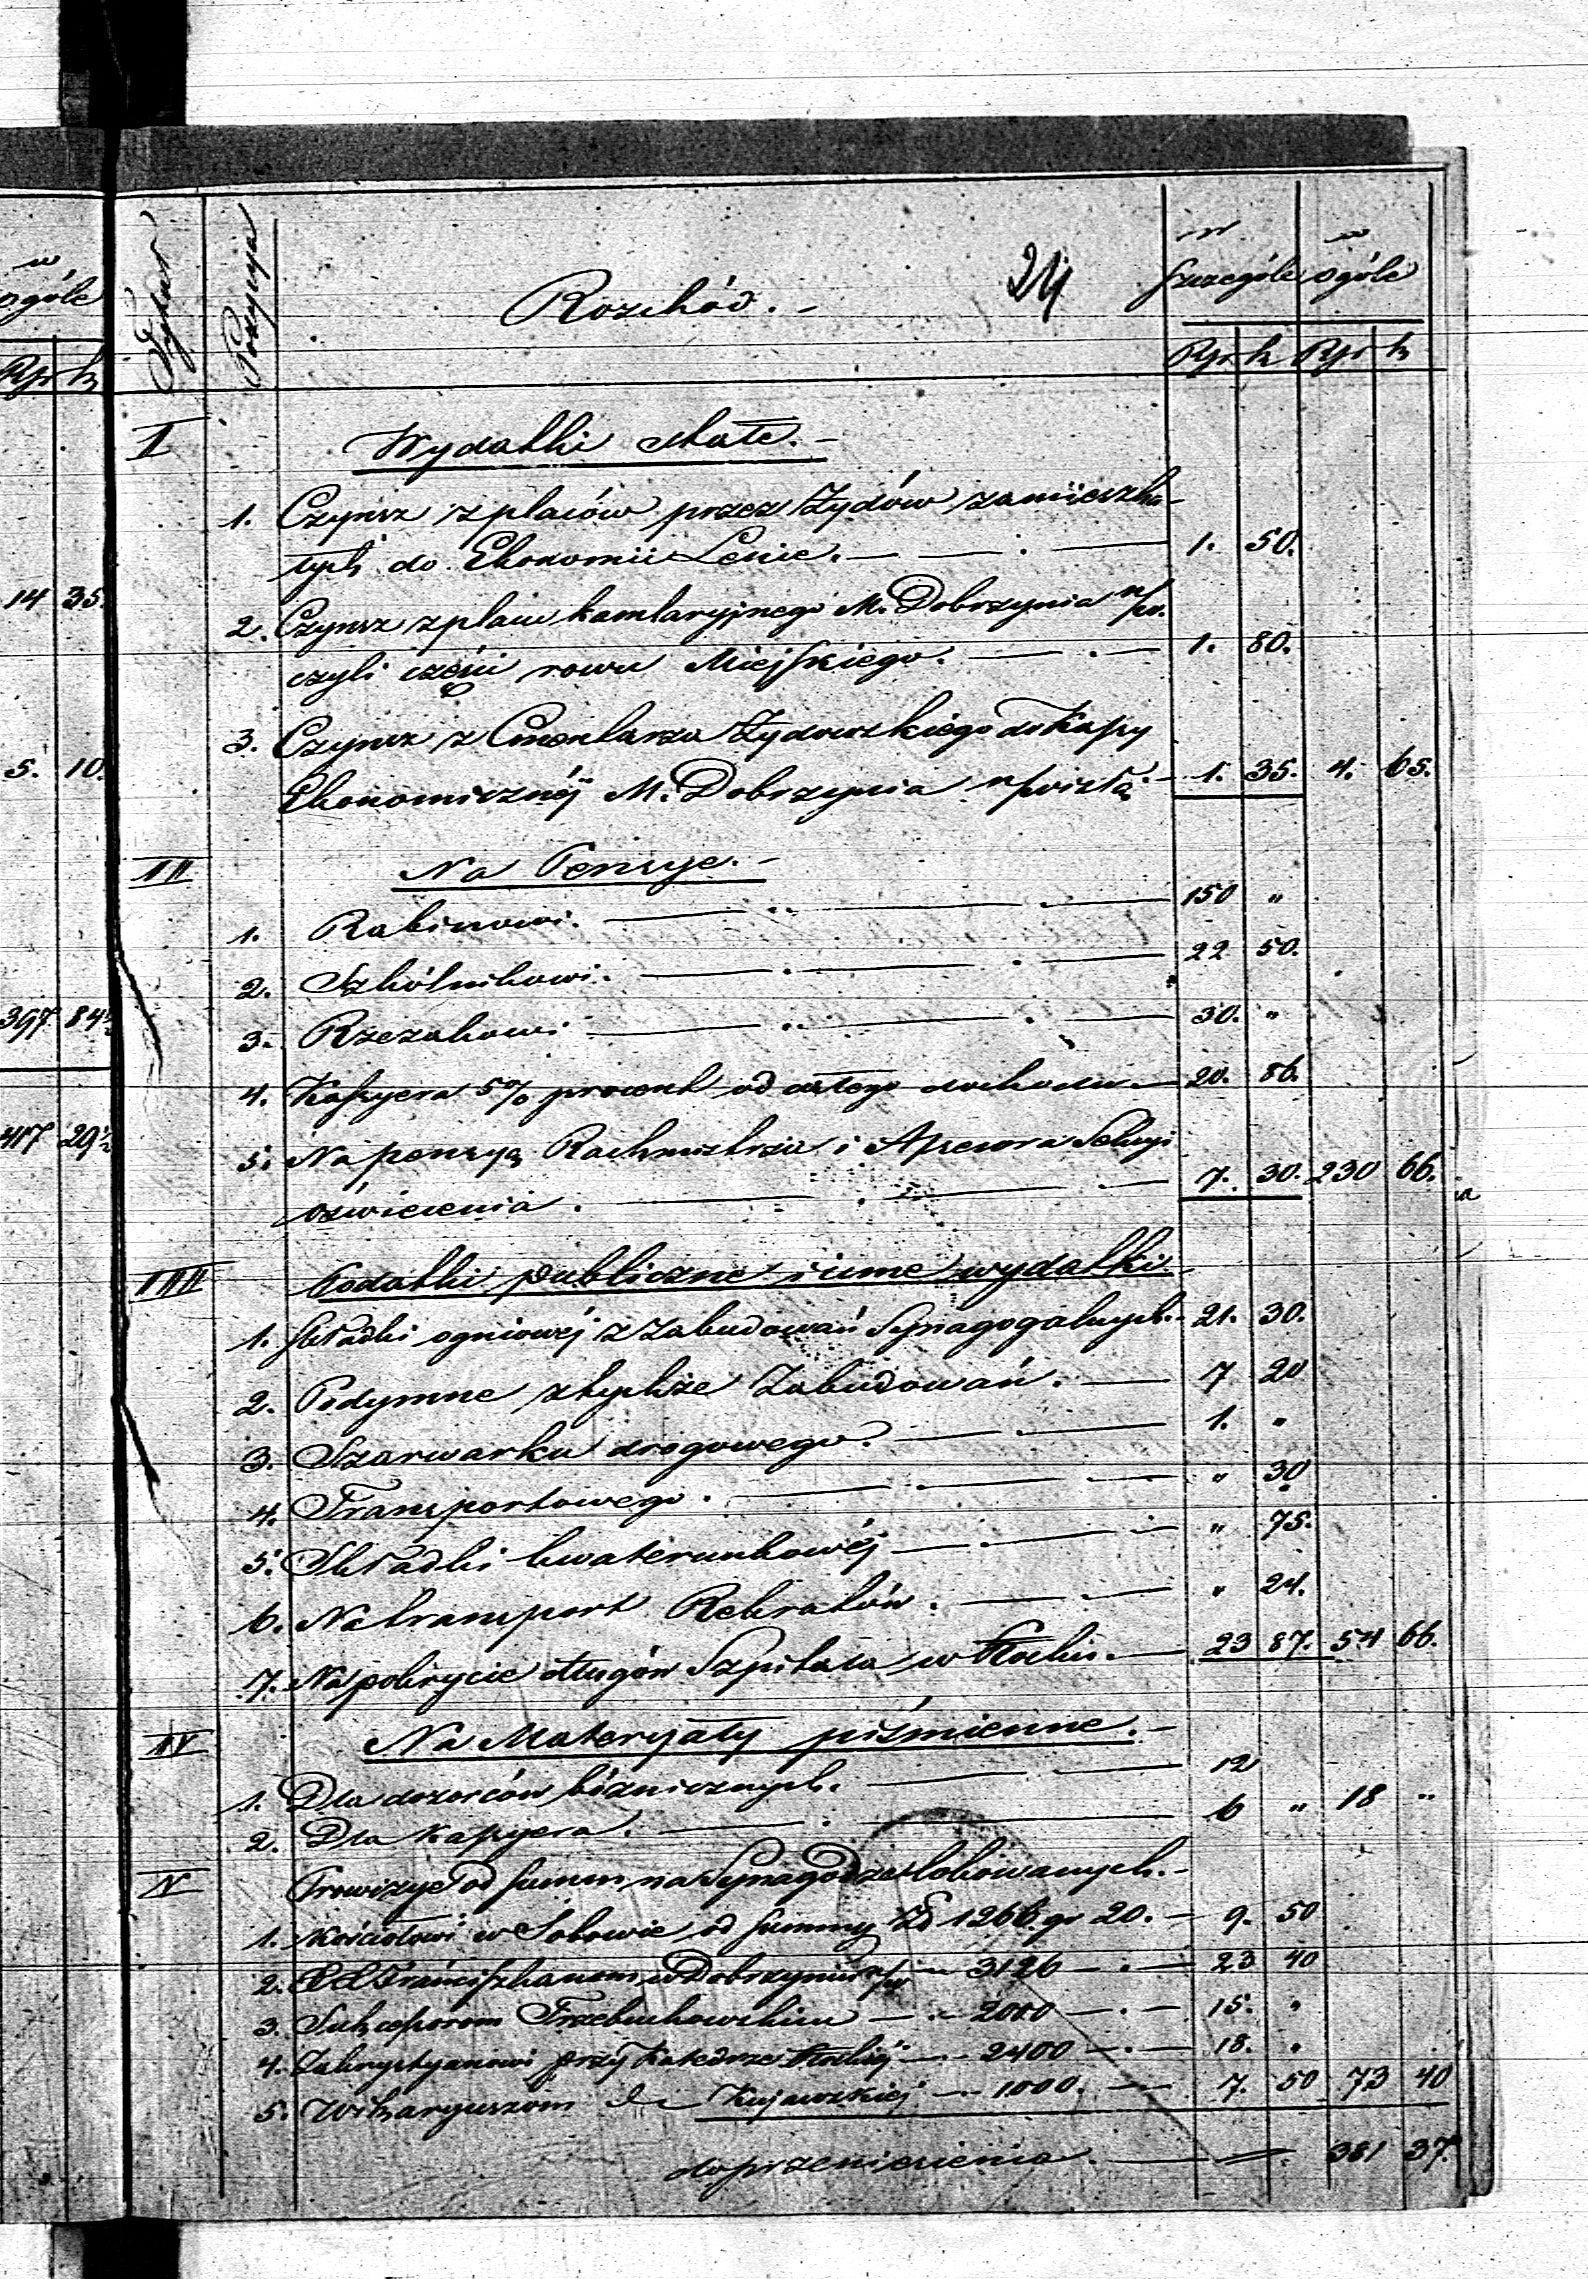 w ogóle
Rsr k
14 35.
5. 10.
397 84½
417 29½
Tytuł
Pozycya
Rozchód. -
24
w szczególe
w ogóle
Rsr k Rsr k
I
Wydatki stałe. -
1. Czynsz z placów przez Żydów zamieszka-
łych do Ekonomii Lenie. — 1. 50.
2. Czynsz z placu kamlaryjnego M. Dobrzynia n/w.
czyli części rowu Miejskiego. — 1. 80.
3. Czynsz z Cmentarza Żydowskiego do Kassy
Ekonomicznéj M. Dobrzynia n/wisłą. - 1. 35. 4. 65.
II
Na Pensye. -
1. Rabinowi. — 150 "
2. Szkólnikowi. — 22 50.
3. Rzezakowi — 30. "
4. Kassyera 5% procent od całego dochodu — 20. 86.
5. Na pensyą Rachmistrza i Assesora Sekcyi
oświecenia. — 7. 30. 230 66.
III
Podatki publiczne i inne wydatki.
1. Składki ogniowéj z Zabudowań Synagogalnych. - 21. 30.
2. Podymne z tychże Zabudowań. — 7 20
3. Szarwarku drogowego. — 1. "
4. Transportowego. — " 30
5. Składki kwaterunkowéj — " 75.
6. Na transport Rekrutów. — " 24.
7. Na pokrycie długów Szpitala w Płocku. — 23 87. 54 66.
IV
Na Materyały piśmienne. -
1. Dla dozorców bóżnicznych. — 12
2. Dla Kassyera. — 6 " 18 "
V
Prowizye od summ na Synagodze lokowanych. -
1. Kościołowi w Sobowie od summy Zł 1266 gr 20. - 9. 50
2. XX Franciszkanom w Dobrzyniu n/w — 3120 — 23 40
3. Sukcessorom Trzebuchowskim — 2000 — 15. "
4. Zakrystyanowi przy Katedrze Płockiéj — 2400 — 18. "
5. Wikaryuszom Kujawskiéj — 1000. — 7. 50 73 40
do przeniesienia. — 381 37.